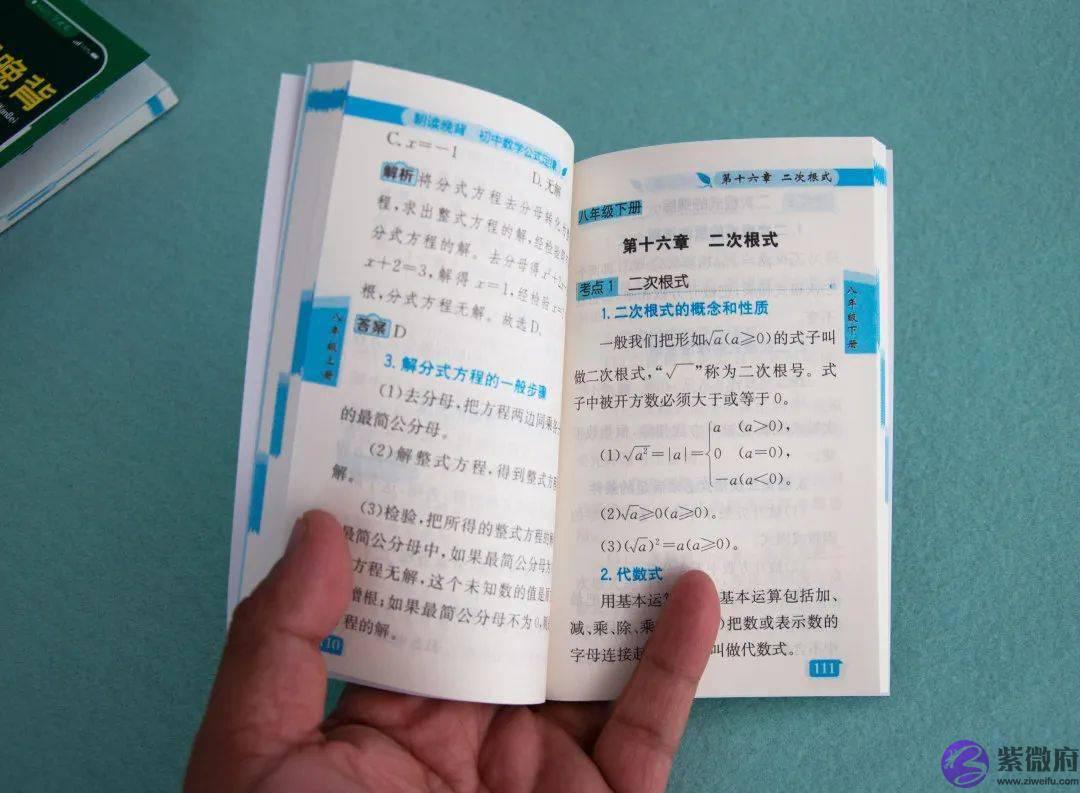 晚背
朝读晚背 初中数学公式定律
C. x=-1
D. 无解
解析 将分式方程去分母转化
程,求出整式方程的解,经检验即
分式方程的解。去分母得
x+2=3,解得 x=1,经检验
根,分式方程无解。故选D.
答案 D
3. 解分式方程的一般步骤
(1)去分母,把方程两边同乘
的最简公分母。
(2)解整式方程,得到整式方程
解。
(3)检验,把所得的整式方程的
最简公分母中,如果最简公分母
方程无解,这个未知数的值是
增根;如果最简公分母不为0,
程的解。
八年级上册
10
第十六章 二次根式
八年级下册
第十六章 二次根式
考点1 二次根式
1. 二次根式的概念和性质
一般我们把形如√a(a≥0)的式子叫
做二次根式,“√ ”称为二次根号。式
子中被开方数必须大于或等于 0。
(1)√a²=|a|={a (a>0),
0 (a=0),
-a(a<0)。
(2)√a≥0(a≥0)。
(3)(√a)²=a(a≥0)。
2. 代数式
用基本运 基本运算包括加、
减、乘、除、乘 )把数或表示数的
字母连接起 叫做代数式。
八年级下册
111
紫微府
www.ziweifu.com